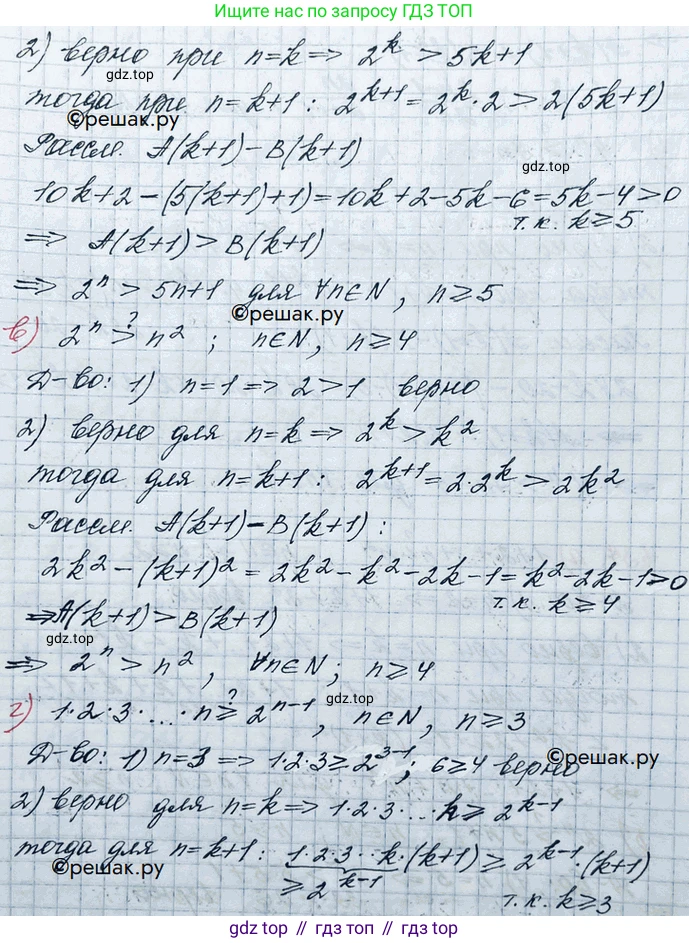 Ищите нас по запросу ГДЗ ТОП
2) верно при n=k => 2^k > 5k+1
gdz.top
тогда при n=k+1: 2^{k+1} = 2^k·2 > 2(5k+1)
©решак.ру
Рассм. A(k+1)-B(k+1)
gdz.top
10k+2-(5(k+1)+1)=10k+2-5k-6=5k-4>0
т.к. k≥5
=> A(k+1)>B(k+1)
=> 2^n > 5n+1 для ∀n∈N, n≥5
©решак.ру
в) 2^n >? n^2; n∈N, n≥4
Д-во: 1) n=1 => 2>1 верно
2) верно для n=k => 2^k > k^2
тогда для n=k+1: 2^{k+1} = 2·2^k > 2k^2
Рассм. A(k+1)-B(k+1):
2k^2-(k+1)^2 = 2k^2-k^2-2k-1 = k^2-2k-1>0
т.к. k≥4
=> A(k+1)>B(k+1)
gdz.top
=> 2^n > n^2, ∀n∈N; n≥4
г) 1·2·3·...·n ≥? 2^{n-1}, n∈N, n≥3
gdz.top
Д-во: 1) n=3 => 1·2·3≥2^{3-1}; 6≥4 верно
©решак.ру
2) верно для n=k => 1·2·3·...k≥2^{k-1}
тогда для n=k+1: 1·2·3··k·(k+1) ≥ 2^{k-1}·(k+1)
≥2^{k-1}
т.к. k≥3
©решак.ру
gdz.top // gdz.top // gdz.top // gdz.top